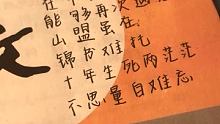 在够次
能盟虽在
山锦书难托
十年生死两茫茫
不思量自难忘